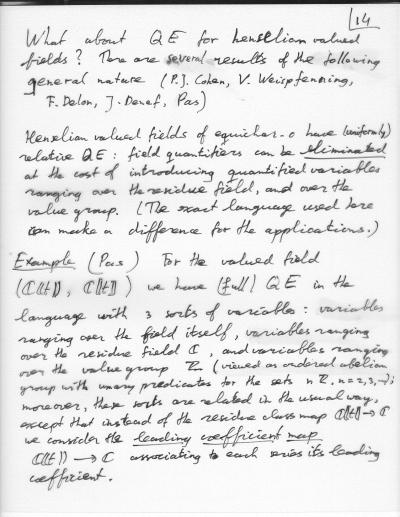 14
What about QE for henselian valued
fields? There are several results of the following
general nature (P.J. Cohen, V. Weispfenning,
F. Delon, J. Denef, Pas)
Henselian valued fields of equichar. 0 have (uniform)
relative QE: field quantifiers can be eliminated
at the cost of introducing quantified variables
ranging over the residue field, and over the
value group. (The exact language used here
can make a difference for the applications.)
Example (Pas) For the valued field
(ℂ((t)), ℂ[[t]]) we have (full) QE in the
language with 3 sorts of variables: variables
ranging over the field itself, variables ranging
over the residue field ℂ, and variables ranging
over the value group ℤ (viewed as ordered abelian
group with unary predicates for the sets nℤ, n=2,3,...);
moreover, these sorts are related in the usual way,
except that instead of the residue class map ℂ[[t]] → ℂ
we consider the leading coefficient map
ℂ((t)) → ℂ associating to each series its leading
coefficient.